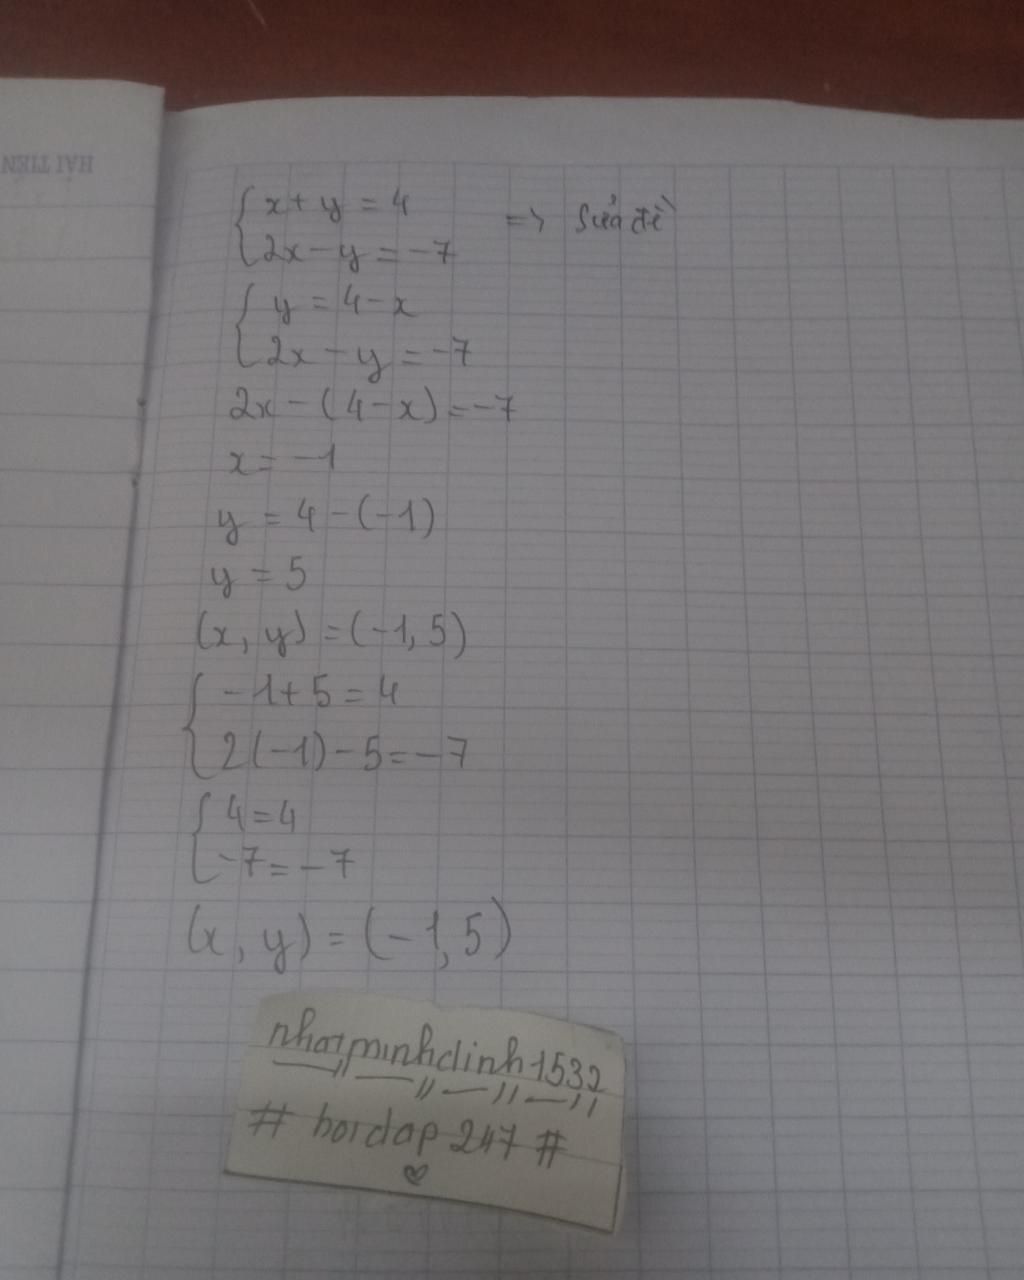 HẢI TIẾN
x + y = 4 => Sửa đề
2x - y = -7
y = 4 - x
2x - y = -7
2x - (4 - x) = -7
x = -1
y = 4 - (-1)
y = 5
(x, y) = (-1, 5)
-1 + 5 = 4
2(-1) - 5 = -7
4 = 4
-7 = -7
(x, y) = (-1, 5)
nhatminhdinh1532
# hoidap 247 #